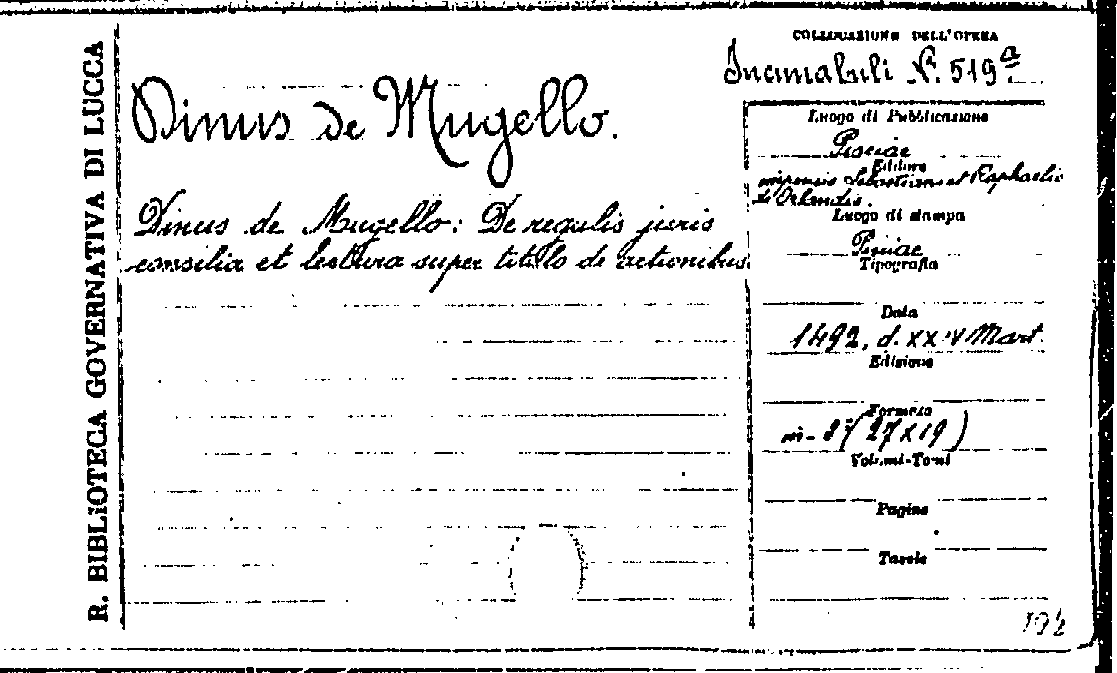 R. BIBLIOTECA GOVERNATIVA DI LUCCA
COLLOCAZIONE DELL'OPERA
Incunabuli N. 519ª
Dinus de Mugello.
Dinus de Mugello: De regulis juris
consilia et lectura super titulo de actionibus.
Luogo di Pubblicazione
Pisciae
Editore
impensis Sebastiani et Raphaelis
de Orlandis.
Luogo di stampa
Pisciae
Tipografia
Data
1492, d. XXIV Mart.
Edizione
Formato
(27x19)
Volumi-Tomi
Pagine
Tavole